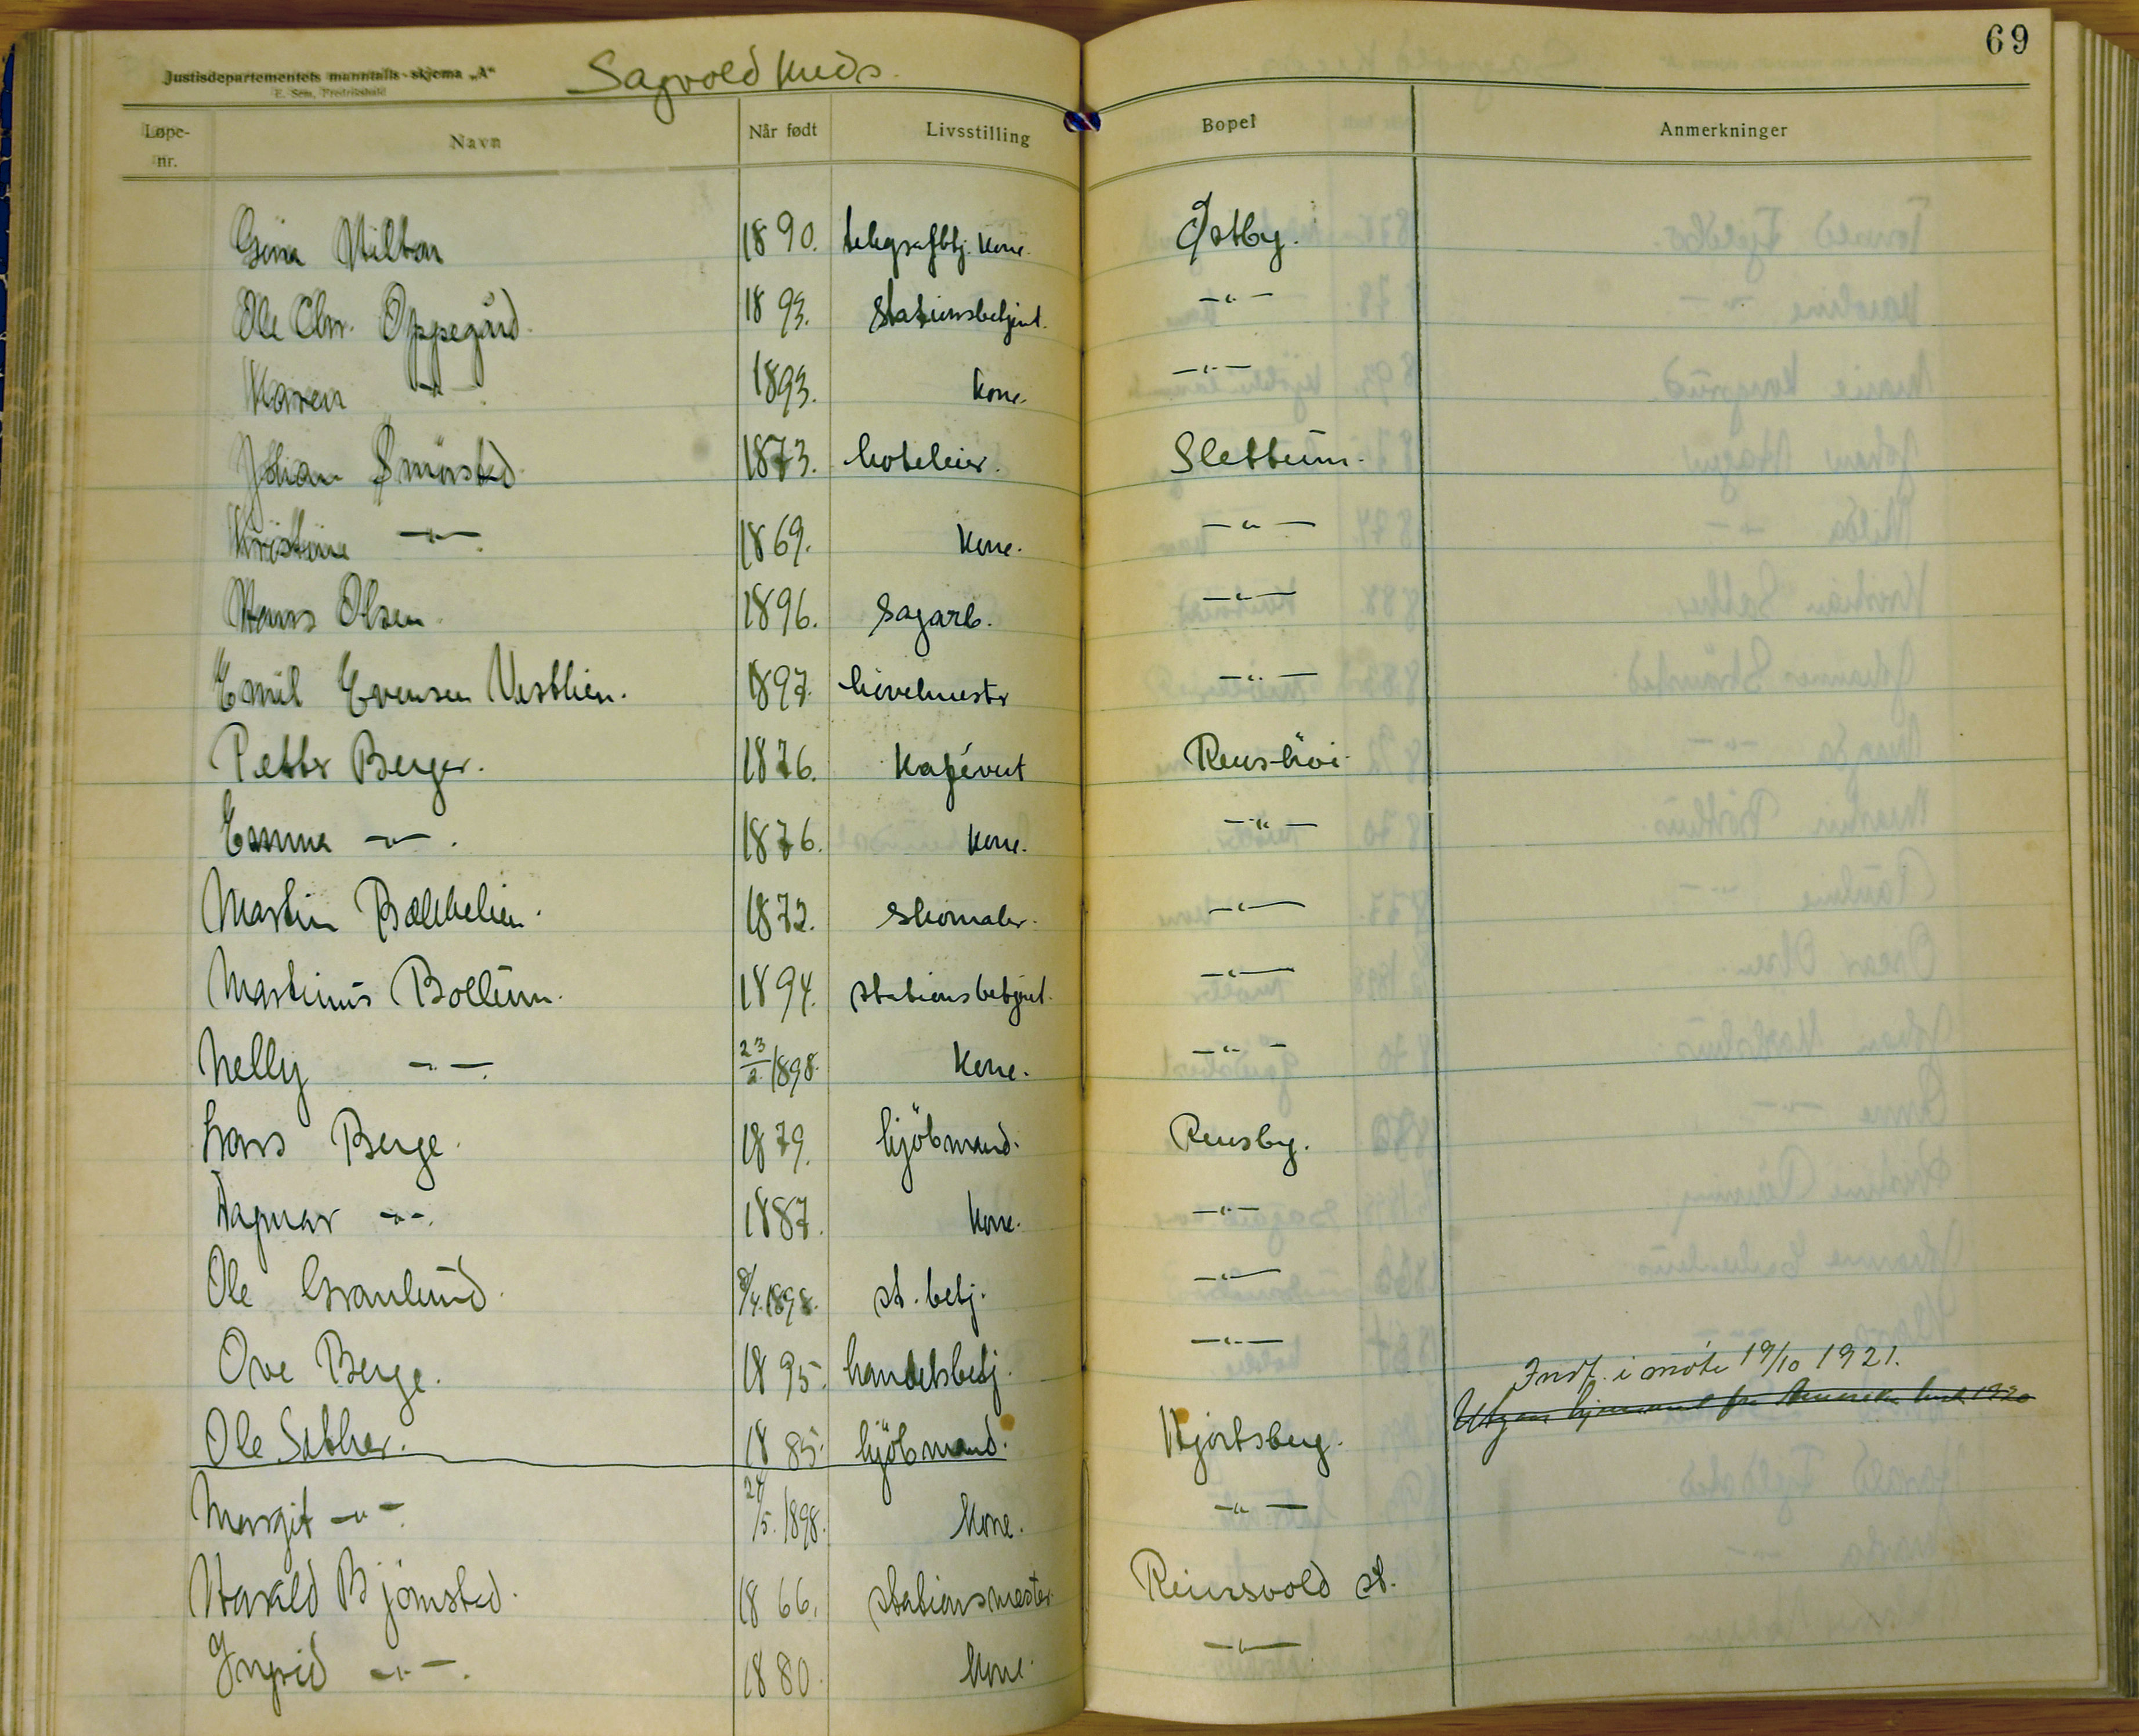 69
Justisdepartementets manntalls-skjema „A“
E. Sem, Fredrikshald
Sagvold Kreds.
Løpe-nr. Navn Når født Livsstilling Bopel Anmerkninger
Gina Milton 1890. telegrafbtj. kone. Østby.
Ole Chr. Oppegård. 1893. Stationsbetjent. —"—
Karen —"— 1893. kone. —"—
Johan Smørsted 1873. hoteleier. Slettum.
Kristine —"—. 1869. Kone. —"—
Hans Olsen. 1896. Sagarb. —"—
Emil Evensen Vestlien. 1897. hövelmester —"—
Petter Berger. 1876. Kafévert Renshöi.
Emma —"—. 1876. kone. —"—
Martin Bakkelien. 1872. Skomaker. —"—
Martinus Bollum. 1894. stationsbetjent. —"—
Nelly —"—. 23/2 1898. Kone. —"—
Lars Berge. 1879. kjöbmand. Rensby.
Dagmar —"—. 1887. Kone. —"—
Ole Granlund. 8/4.1898. st. betj. —"—
Ove Berge. 1895. handelsbetj. —"—
Indf. i møte 19/10 1921.
Ole Sether. 1885. kjöbmand. Hjortsberg. fra Amerika 1920
Margit —"—. 24/5.1898. Kone. —"—
Harald Bjørnsted. 1866. stationsmester. Reinsvold st.
Ingrid —"—. 1880. kone. —"—